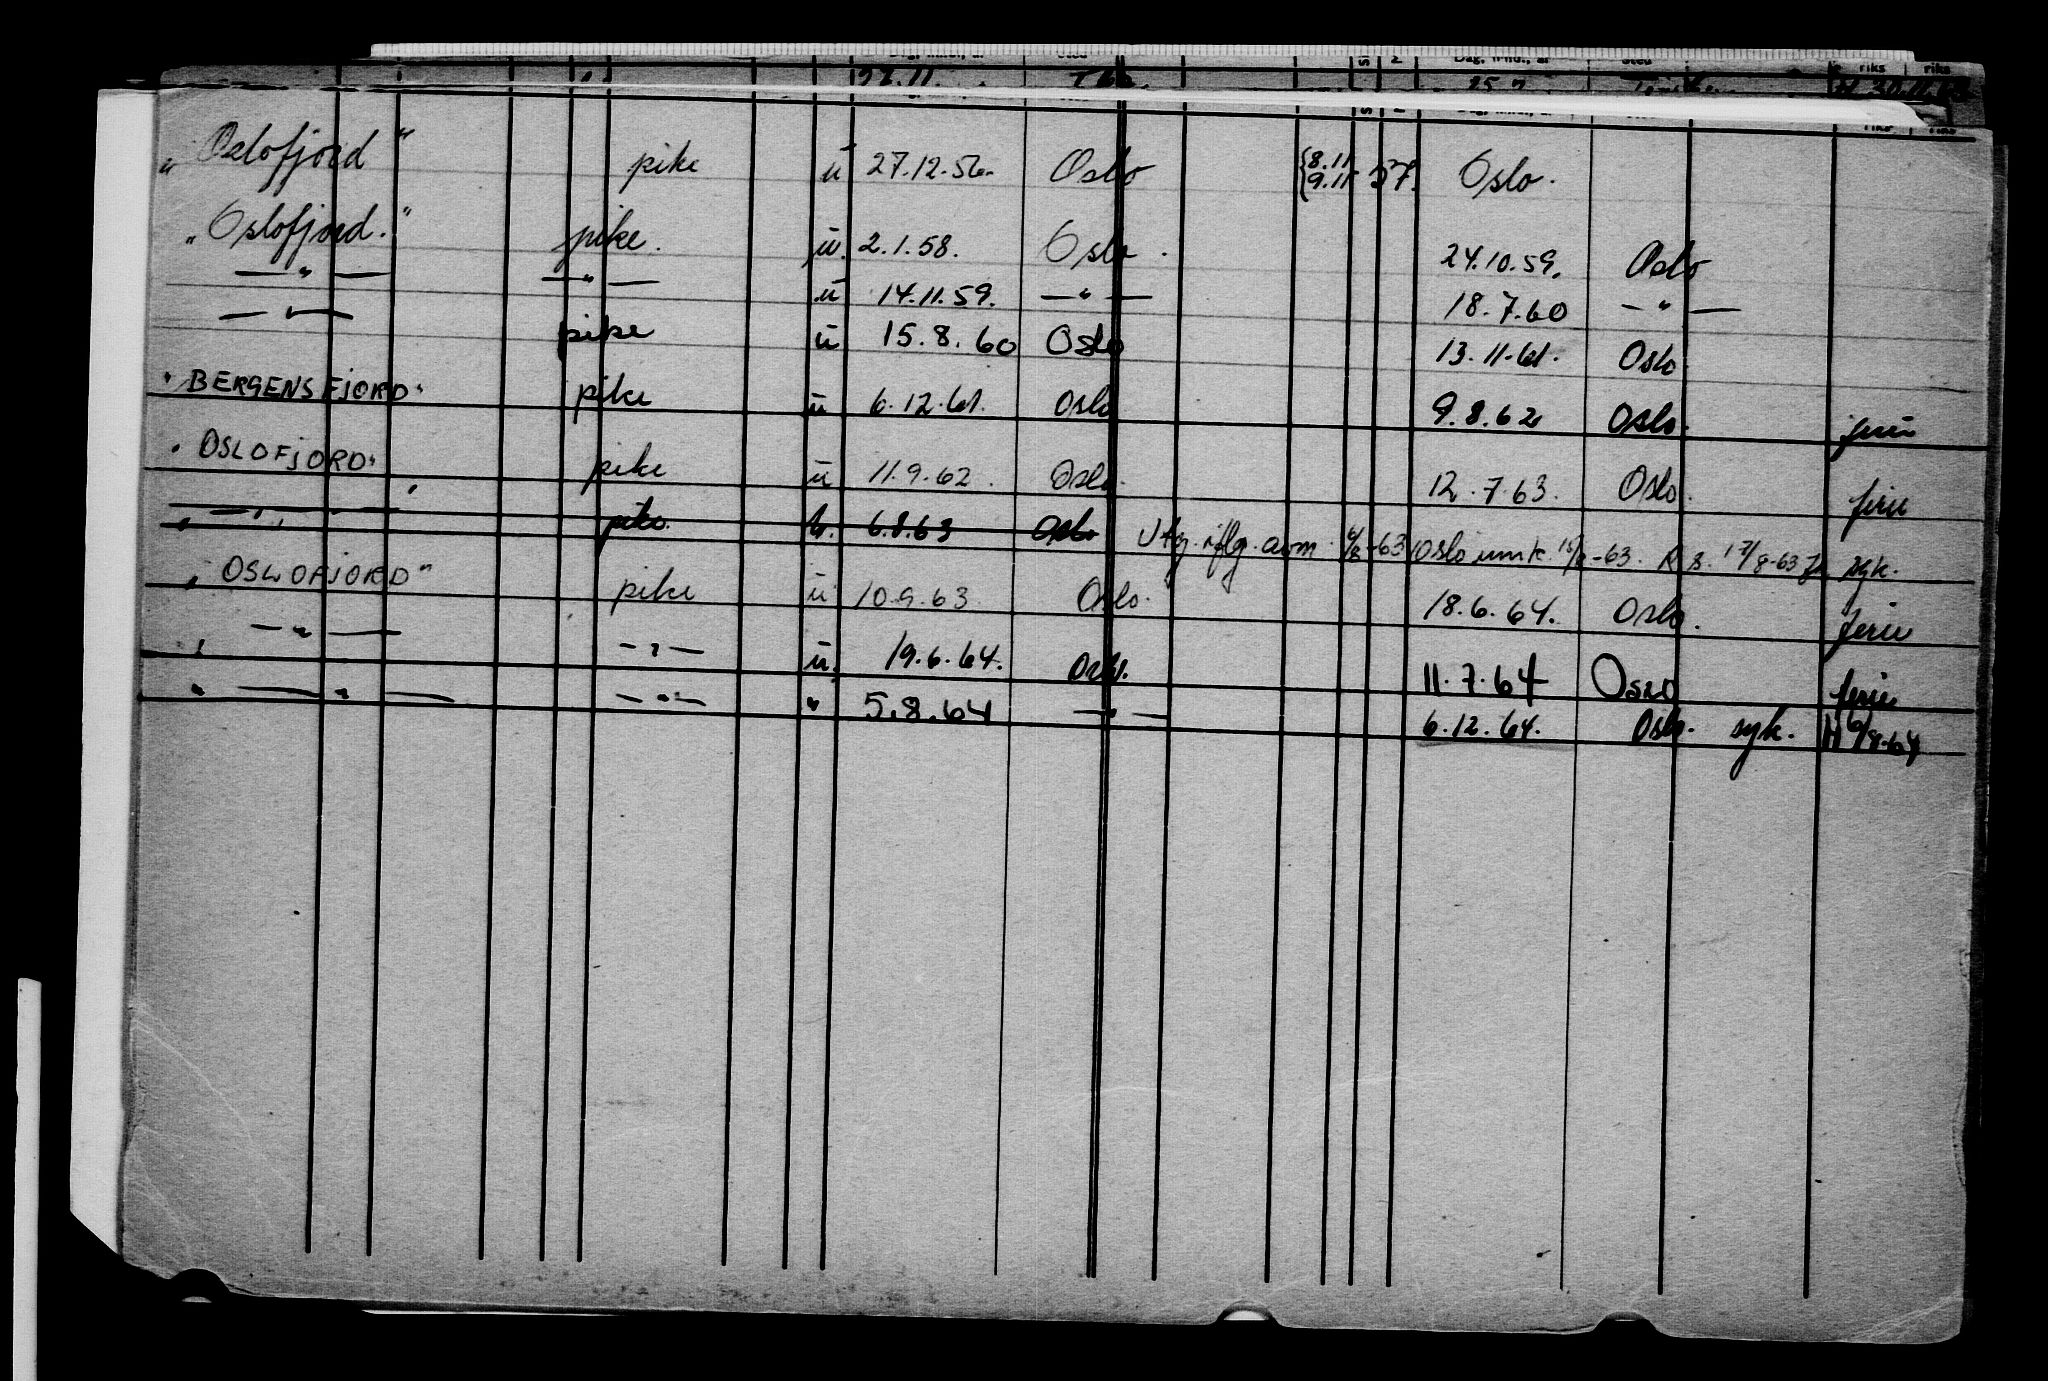 riks riks
" Oslofjord " pike u 27.12.56. Oslo {8.11 9.11 57. Oslo.
" Oslofjord. " pike. u. 2.1.58. Oslo. 24.10.59. Oslo
— " — — " — u 14.11.59. — " — 18.7.60 — " —
— " — pike u 15.8.60 Oslo 13.11.61. Oslo
" BERGENSFJORD " pike u 6.12.61. Oslo 9.8.62 Oslo. ferie
" OSLOFJORD " pike u 11.9.62. Oslo. 12.7.63. Oslo. ferie
— " — pike. u. 6.8.63 Oslo Utg. iflg. avm. 6/8-63 Oslo umk. 15/8-63. 17/8-63 syk.
" OSLOFJORD " pike u 10.9.63 Oslo. 18.6.64. Oslo. ferie
— " — — " — u. 19.6.64. Oslo. 11.7.64 Oslo ferie
" — " — — " — " 5.8.64 — " — 6.12.64. Oslo. syk. 6/8-64